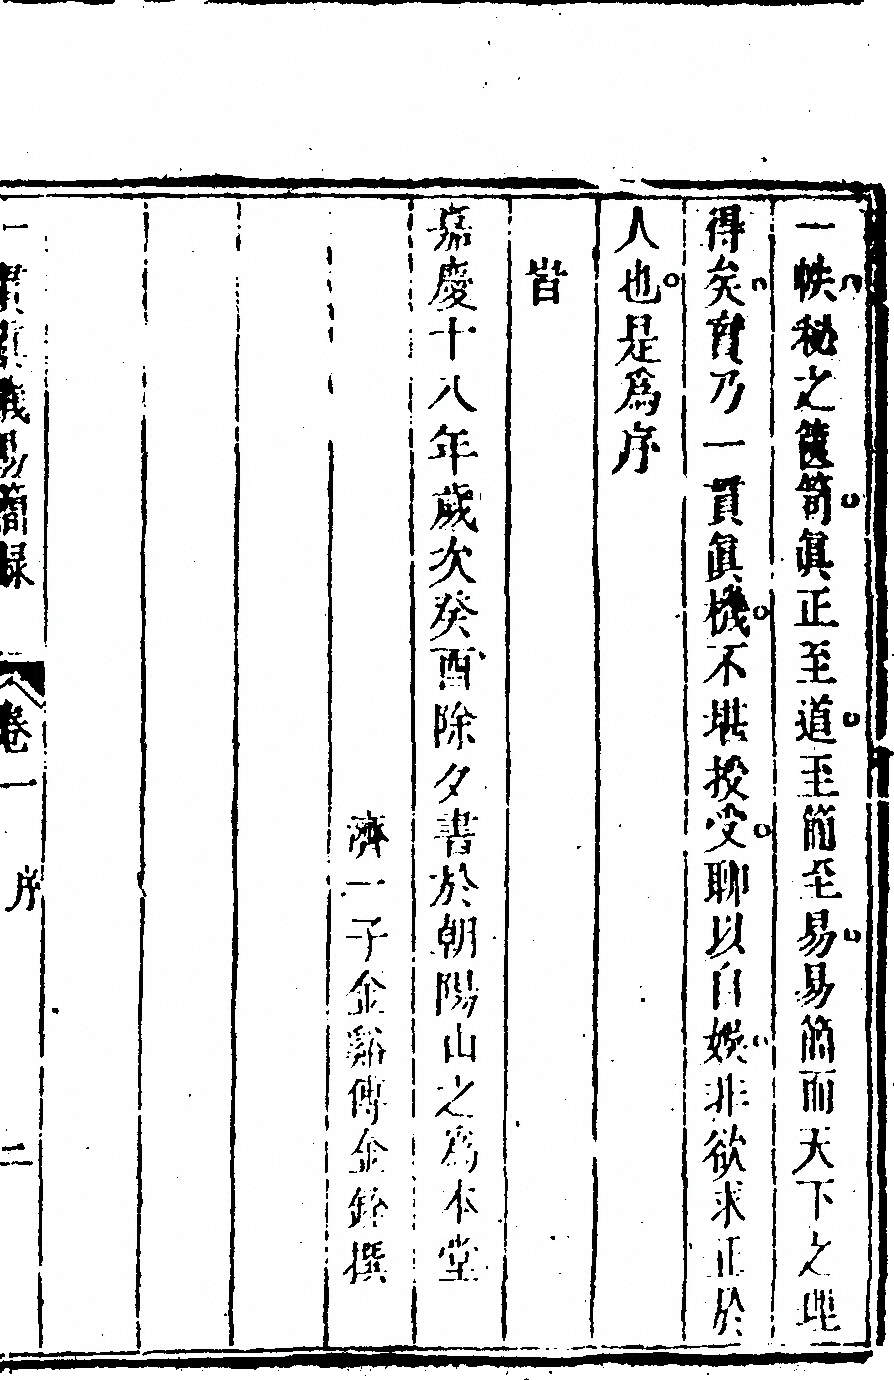 一帙秘之篋笥眞正至道至簡至易易簡而天下之理
得矣實乃一貫眞機不堪授受聊以自娛非欲求正於
人也是爲序
旹
嘉慶十八年歲次癸酉除夕書於朝陽山之爲本堂
濟一子金谿傅金銓撰
一貫眞機易簡録 卷一 序 二